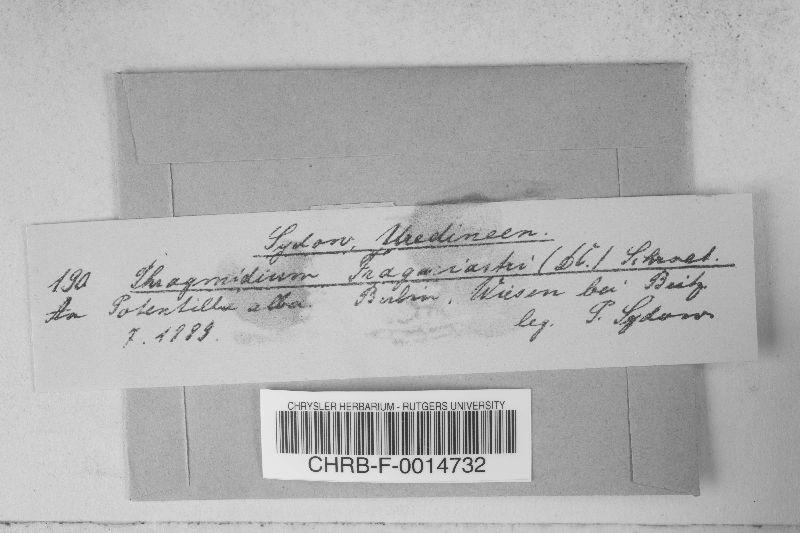 Sydow, Uredineen.
190 Phragmidium Fragariastri (DC.) Schroet.
An Potentilla alba. Berlin, Wiesen bei Britz
7. 1889. leg. P. Sydow
CHRYSLER HERBARIUM - RUTGERS UNIVERSITY
CHRB-F-0014732